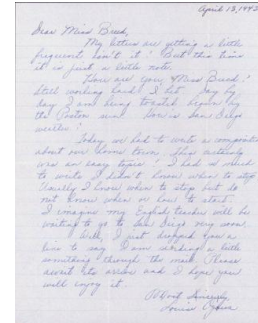 April 13, 1942
Dear Miss Breed,
My letters are getting a little
frequent isn't it! But this time
it is just a little note.
How are you Miss Breed?
Still working hard? I bet. Day by
day I am being toasted brown by
the Poston sun. How is San Diego
weather?
Today we had to write a composition
about our home town. This certainly
was an easy topic! I had so much
to write I didn't know when to stop.
Finally I knew when to stop but do
not know when or how to start.
I imagine my English teacher will be
waiting to go to San Diego very soon.
Well, I just dropped you a
line to say I am sending a little
something through the mail. Please
await its arrive and I hope you
will enjoy it.
Most Sincerely,
Louise Ogawa